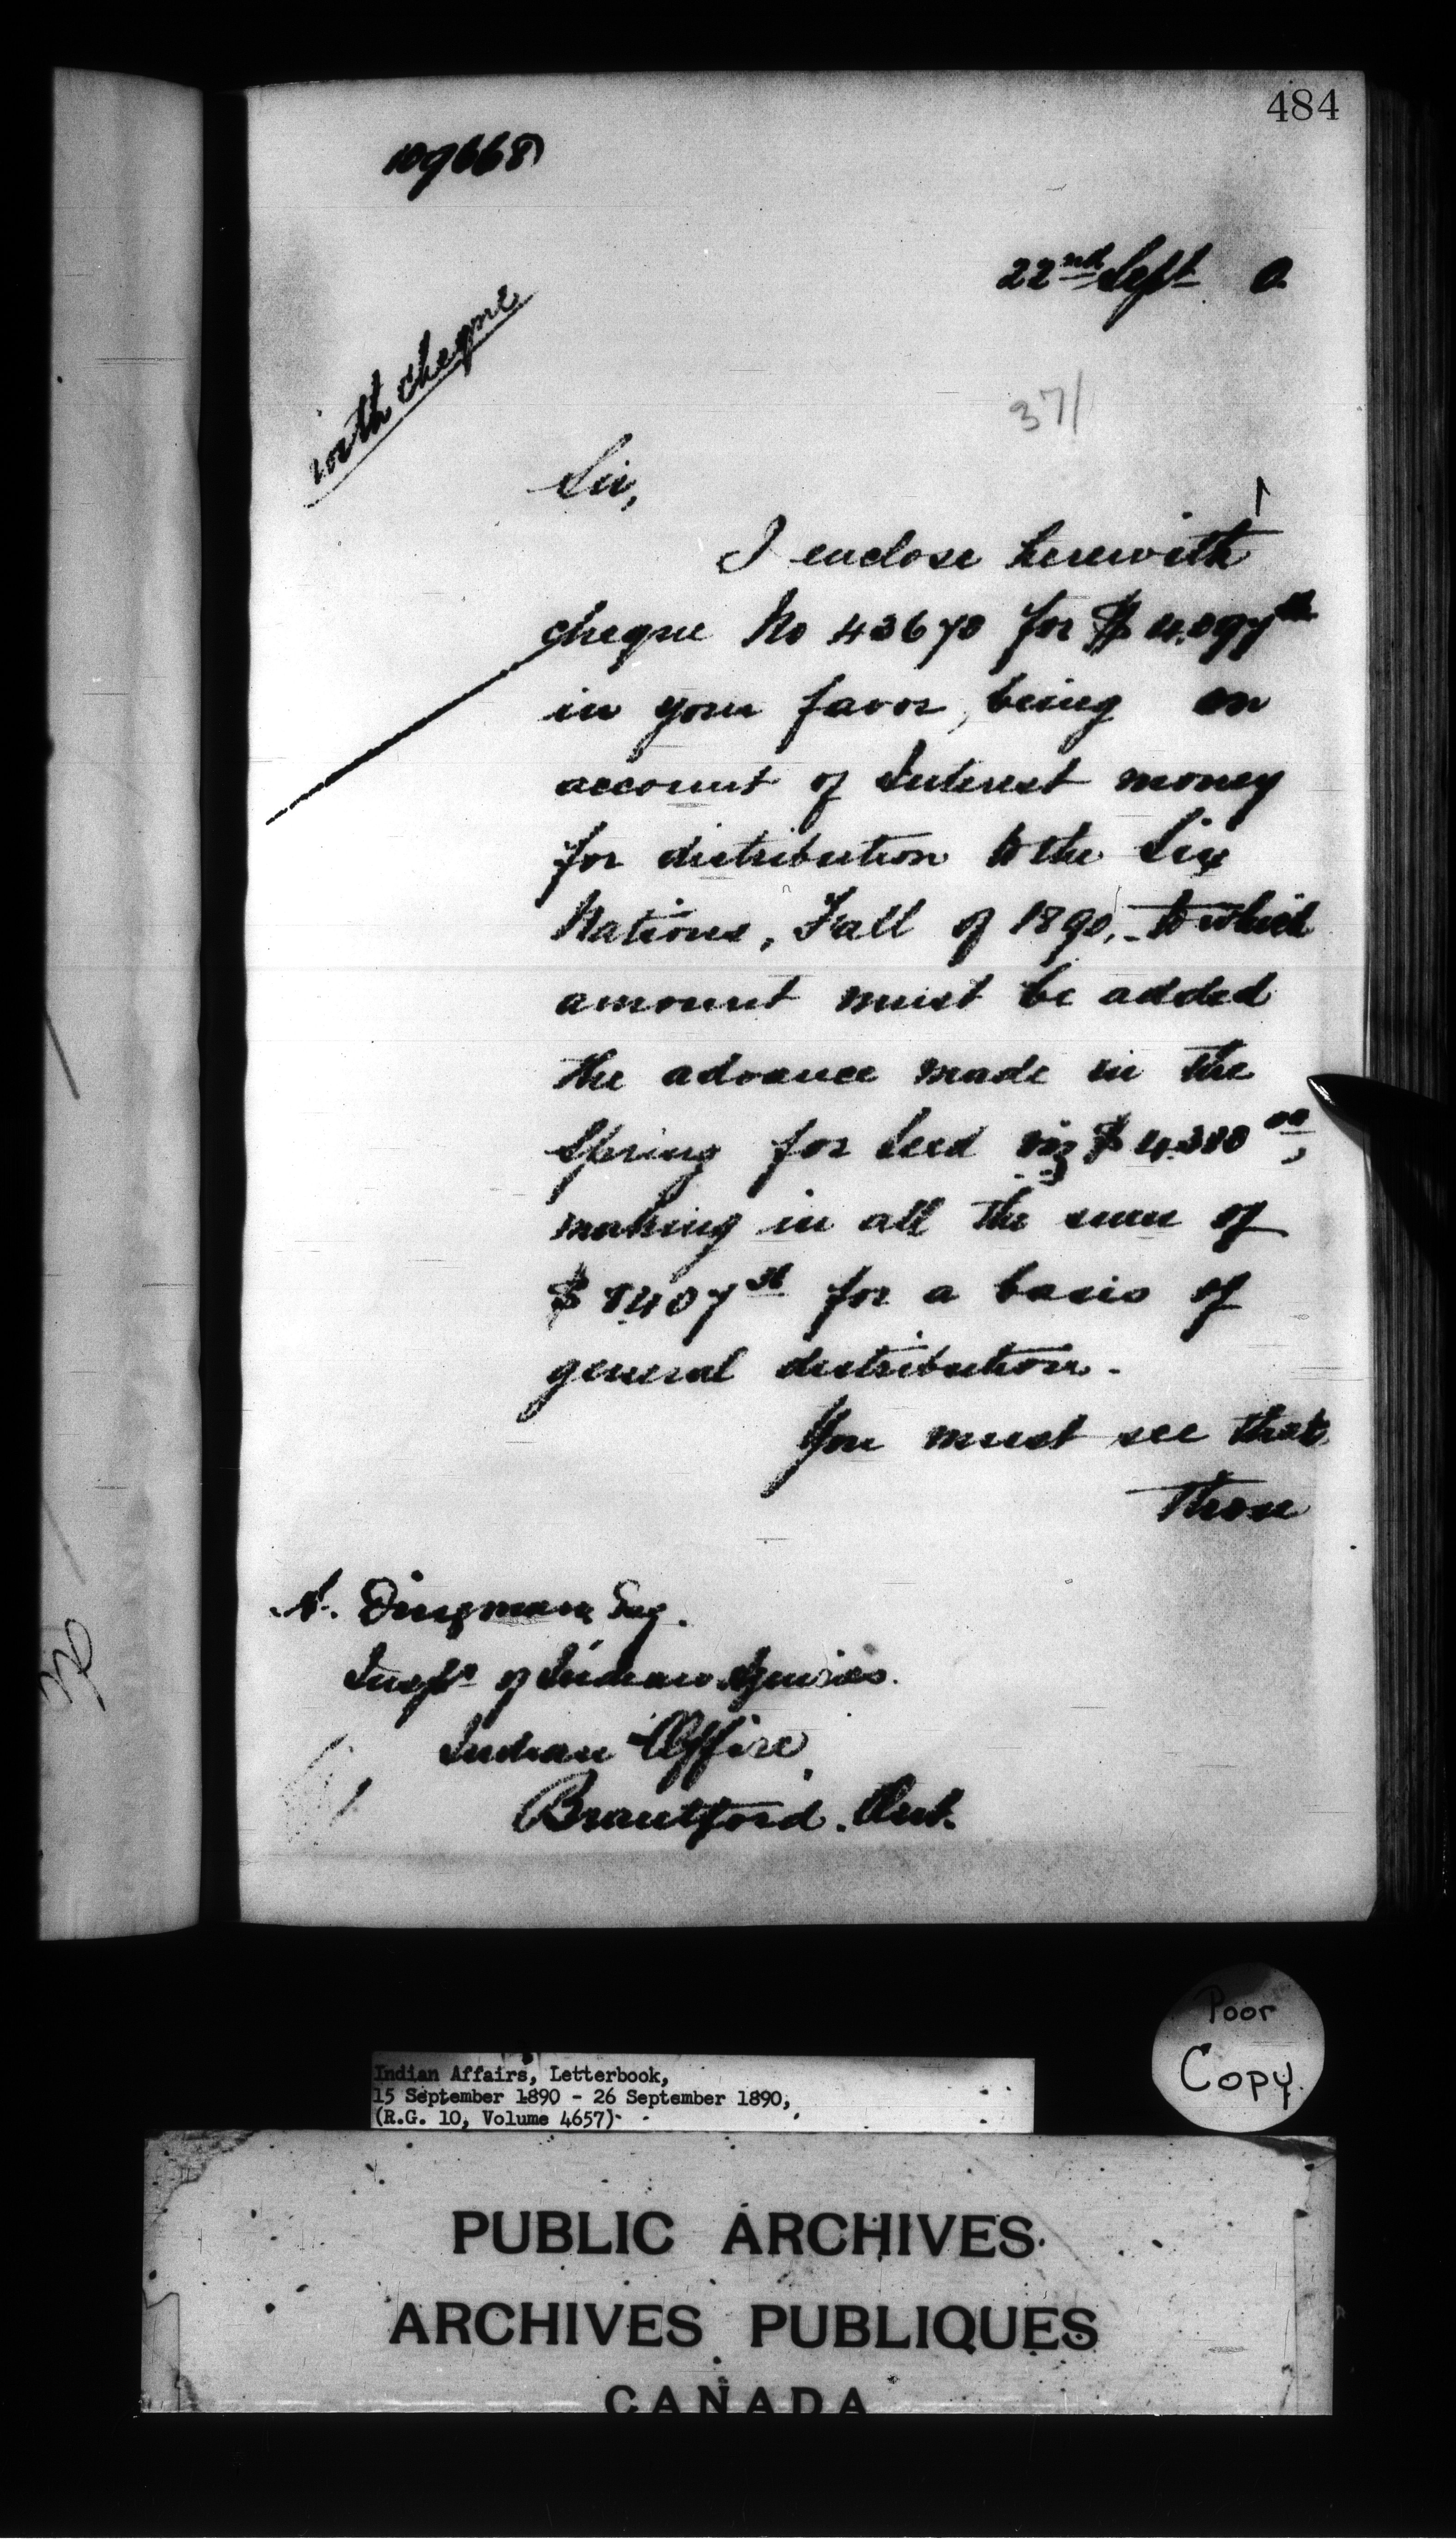 484
109668
22nd Sept 0
with cheque
37/
Sir,
I enclose herewith
cheque No 43670 for $
in your favor, being on
account of Interest money
for distribution to the Six
Nations, Fall of 1890, to which
amount must be added
the advance made in the
Spring for Seed viz $
making in all the sum of
$ for a basis of
general distribution.
You must see that
those
A. Dingman Esq.
Inspr of Indian Agencies.
Indian Office,
Brantford. Ont.
Poor
Copy.
Indian Affairs, Letterbook,
15 September 1890 - 26 September 1890,
(R.G. 10, Volume 4657)
PUBLIC ARCHIVES
ARCHIVES PUBLIQUES
CANADA